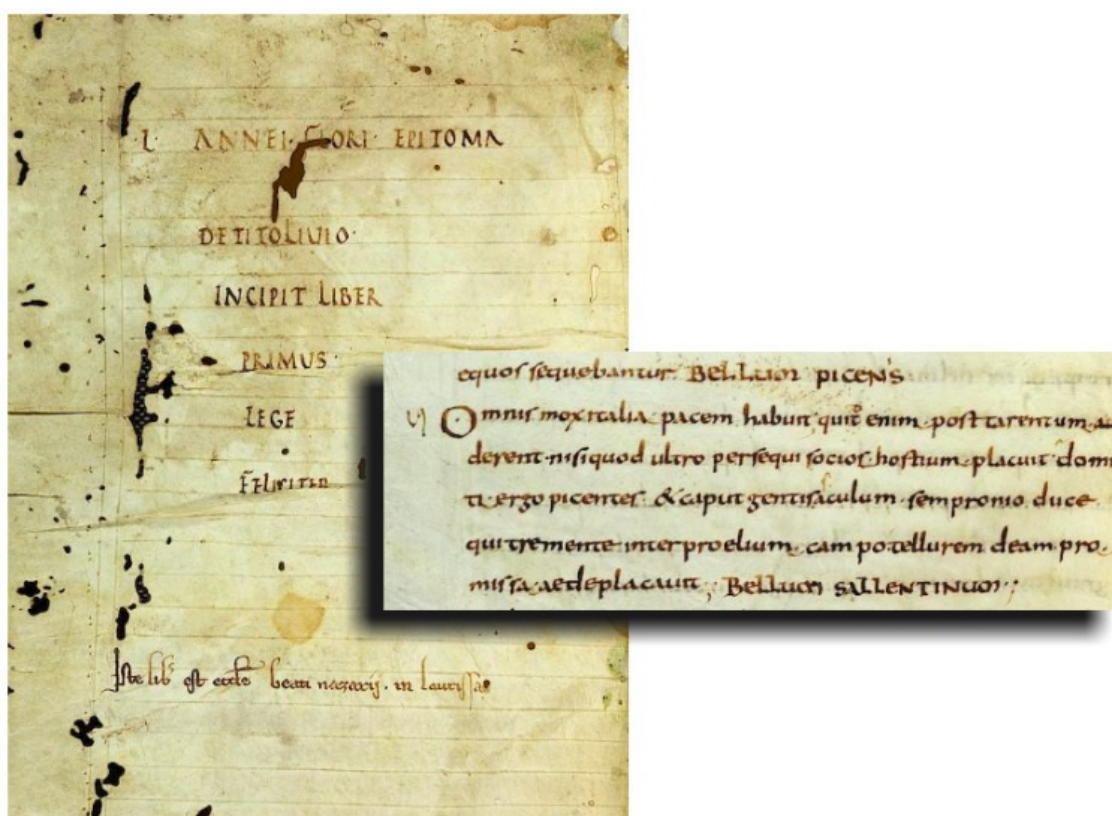 L· ANNEI· FLORI· EPITOMA
DETITOLIVIO·
INCIPIT LIBER
PRIMUS·
LEGE
FELICITER
Iste lib' est eccl'e beati nazarij. in laurissa
equos sequebantur. BELLUM PICENS
Omnis mox italia· pacem habuit· quid enim· post tarentum· au
derent· nisi quod ultro persequi socios· hostium· placuit· domi
ti· ergo picentes· & caput gentis· asculum· sempronio duce·
qui tremente· inter proelium· campo· tellurem deam pro·
missa· aede placavit; BELLUM SALLENTINUM;